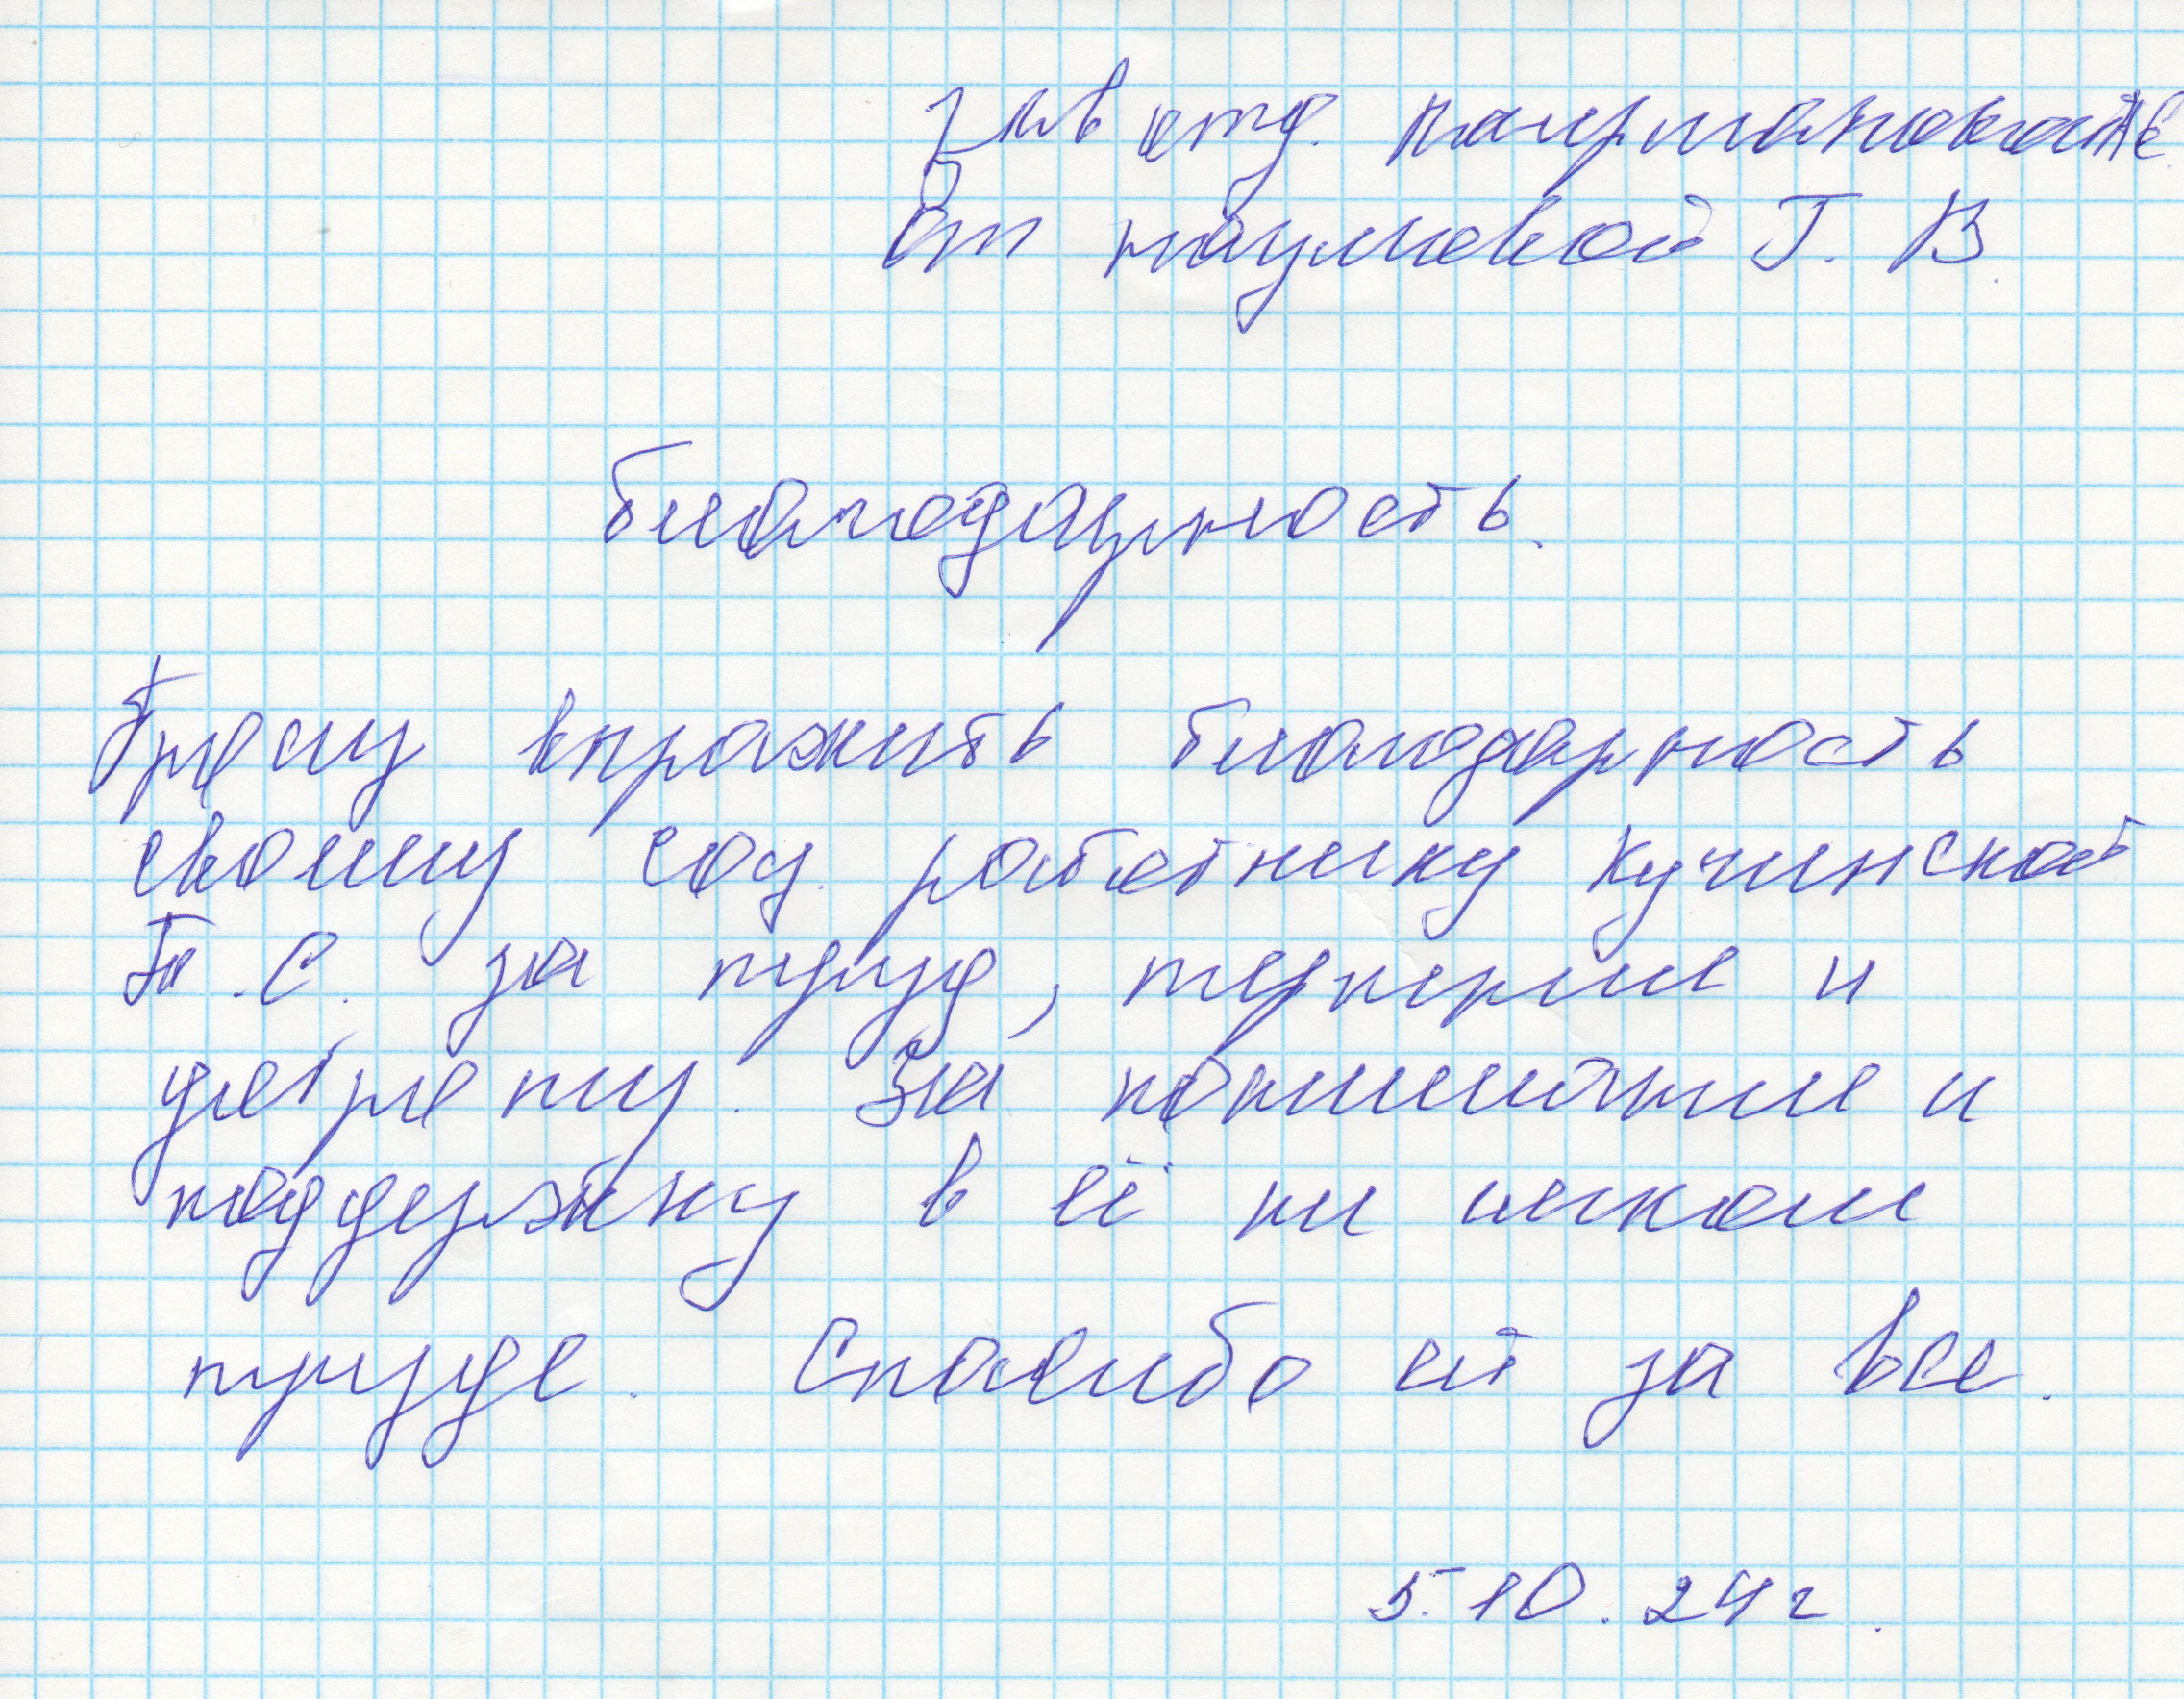 Зав отд.
От Наумовой Г. В.
Благодарность.
Прошу выразить благодарность
своему соц. работнику Кучинской
Т. С. за труд, терпение и
доброту. За понимание и
поддержку в её не легком
труде. Спасибо ей за все.
5.10.24 г.